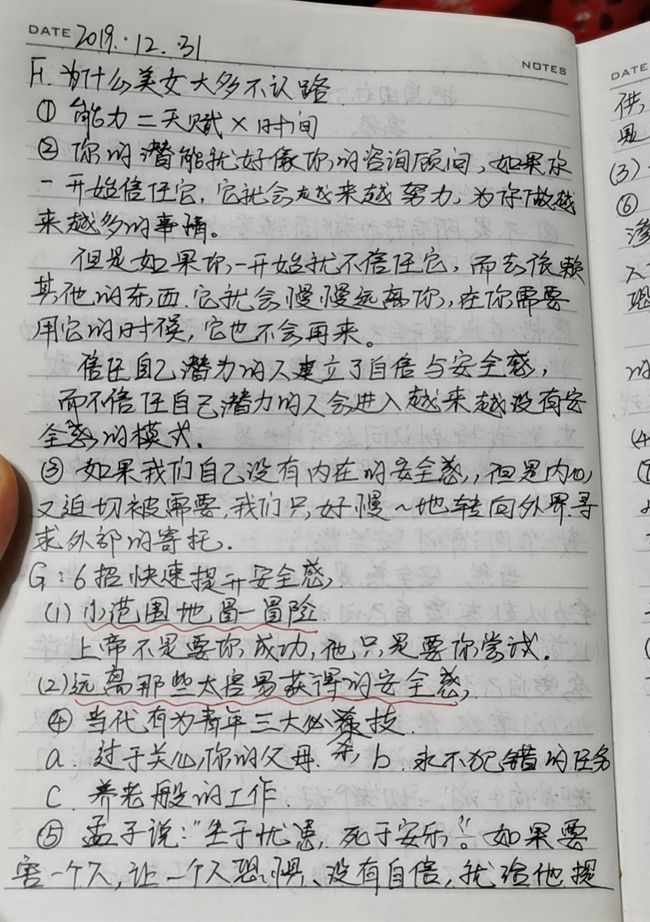 DATE 2019.12.31
NOTES
F.为什么美女大多不认路
① 能力=天赋×时间
② 你的潜能就好像你的咨询顾问,如果你
一开始信任它,它就会越来越努力,为你做越
来越多的事情。
但是如果你一开始就不信任它,而去依赖
其他的东西,它就会慢慢远离你,在你需要
用它的时候,它也不会再来。
信任自己潜力的人建立了自信与安全感,
而不信任自己潜力的人会进入越来越没有安
全感的模式.
③ 如果我们自己没有内在的安全感,但是内心
又迫切被需要,我们只好慢~地转向外界寻
求外部的寄托.
G:6招快速提升安全感
(1)小范围地冒一冒险
上帝不是要你成功,他只是要你尝试.
(2)远离那些太容易获得的安全感,
④ 当代有为青年三大必杀技.
a.过于关心你的父母. b.永不犯错的任务
C.养老般的工作.
⑤ 孟子说:"生于忧患,死于安乐"。如果要
害一个人,让一个人恐惧、没有自信,就给他提
DATE
供
(3)
⑥
渗
入
恐
的
(4)
⑦